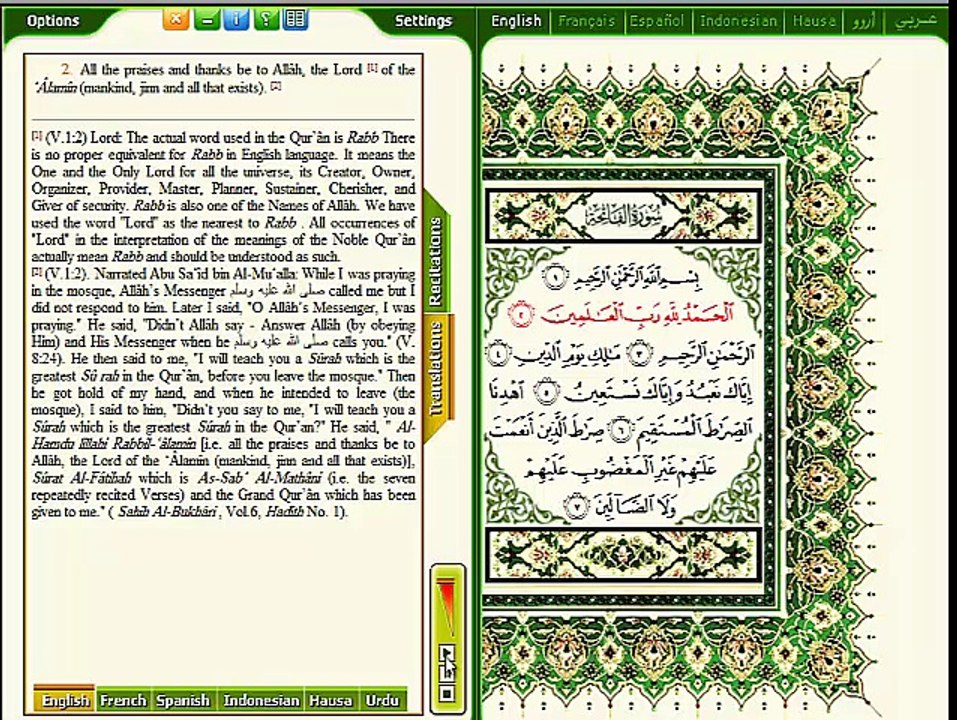 Options
Settings
English Français Español Indonesian Hausa اُردو عـربي
2. All the praises and thanks be to Allâh, the Lord [1] of the
'Âlamîn (mankind, jinn and all that exists). [2]
[1] (V.1:2) Lord: The actual word used in the Qur'ân is Rabb There
is no proper equivalent for Rabb in English language. It means the
One and the Only Lord for all the universe, its Creator, Owner,
Organizer, Provider, Master, Planner, Sustainer, Cherisher, and
Giver of security. Rabb is also one of the Names of Allâh. We have
used the word "Lord" as the nearest to Rabb . All occurrences of
"Lord" in the interpretation of the meanings of the Noble Qur'ân
actually mean Rabb and should be understood as such.
[2] (V.1:2). Narrated Abu Sa'îd bin Al-Mu'alla: While I was praying
in the mosque, Allâh's Messenger صلى الله عليه وسلم called me but I
did not respond to him. Later I said, "O Allâh's Messenger, I was
praying." He said, "Didn't Allâh say - Answer Allâh (by obeying
Him) and His Messenger when he صلى الله عليه وسلم calls you." (V.
8:24). He then said to me, "I will teach you a Sûrah which is the
greatest Sû rah in the Qur'ân, before you leave the mosque." Then
he got hold of my hand, and when he intended to leave (the
mosque), I said to him, "Didn't you say to me, "I will teach you a
Sûrah which is the greatest Sûrah in the Qur'an?" He said, " Al-
Hamdu lillahi Rabbil-'âlamîn [i.e. all the praises and thanks be to
Allâh, the Lord of the 'Âlamîn (mankind, jinn and all that exists)],
Sûrat Al-Fâtihah which is As-Sab' Al-Mathâni (i.e. the seven
repeatedly recited Verses) and the Grand Qur'ân which has been
given to me." ( Sahih Al-Bukhâri , Vol.6, Hadîth No. 1).
Recitations
Translations
English French Spanish Indonesian Hausa Urdu
سُورَةُ الفَاتِحَةِ
بِسْمِ ٱللَّهِ ٱلرَّحْمَٰنِ ٱلرَّحِيمِ ١
ٱلْحَمْدُ لِلَّهِ رَبِّ ٱلْعَٰلَمِينَ ٢
ٱلرَّحْمَٰنِ ٱلرَّحِيمِ ٣ مَٰلِكِ يَوْمِ ٱلدِّينِ ٤
إِيَّاكَ نَعْبُدُ وَإِيَّاكَ نَسْتَعِينُ ٥ ٱهْدِنَا
ٱلصِّرَٰطَ ٱلْمُسْتَقِيمَ ٦ صِرَٰطَ ٱلَّذِينَ أَنْعَمْتَ
عَلَيْهِمْ غَيْرِ ٱلْمَغْضُوبِ عَلَيْهِمْ
وَلَا ٱلضَّآلِّينَ ٧